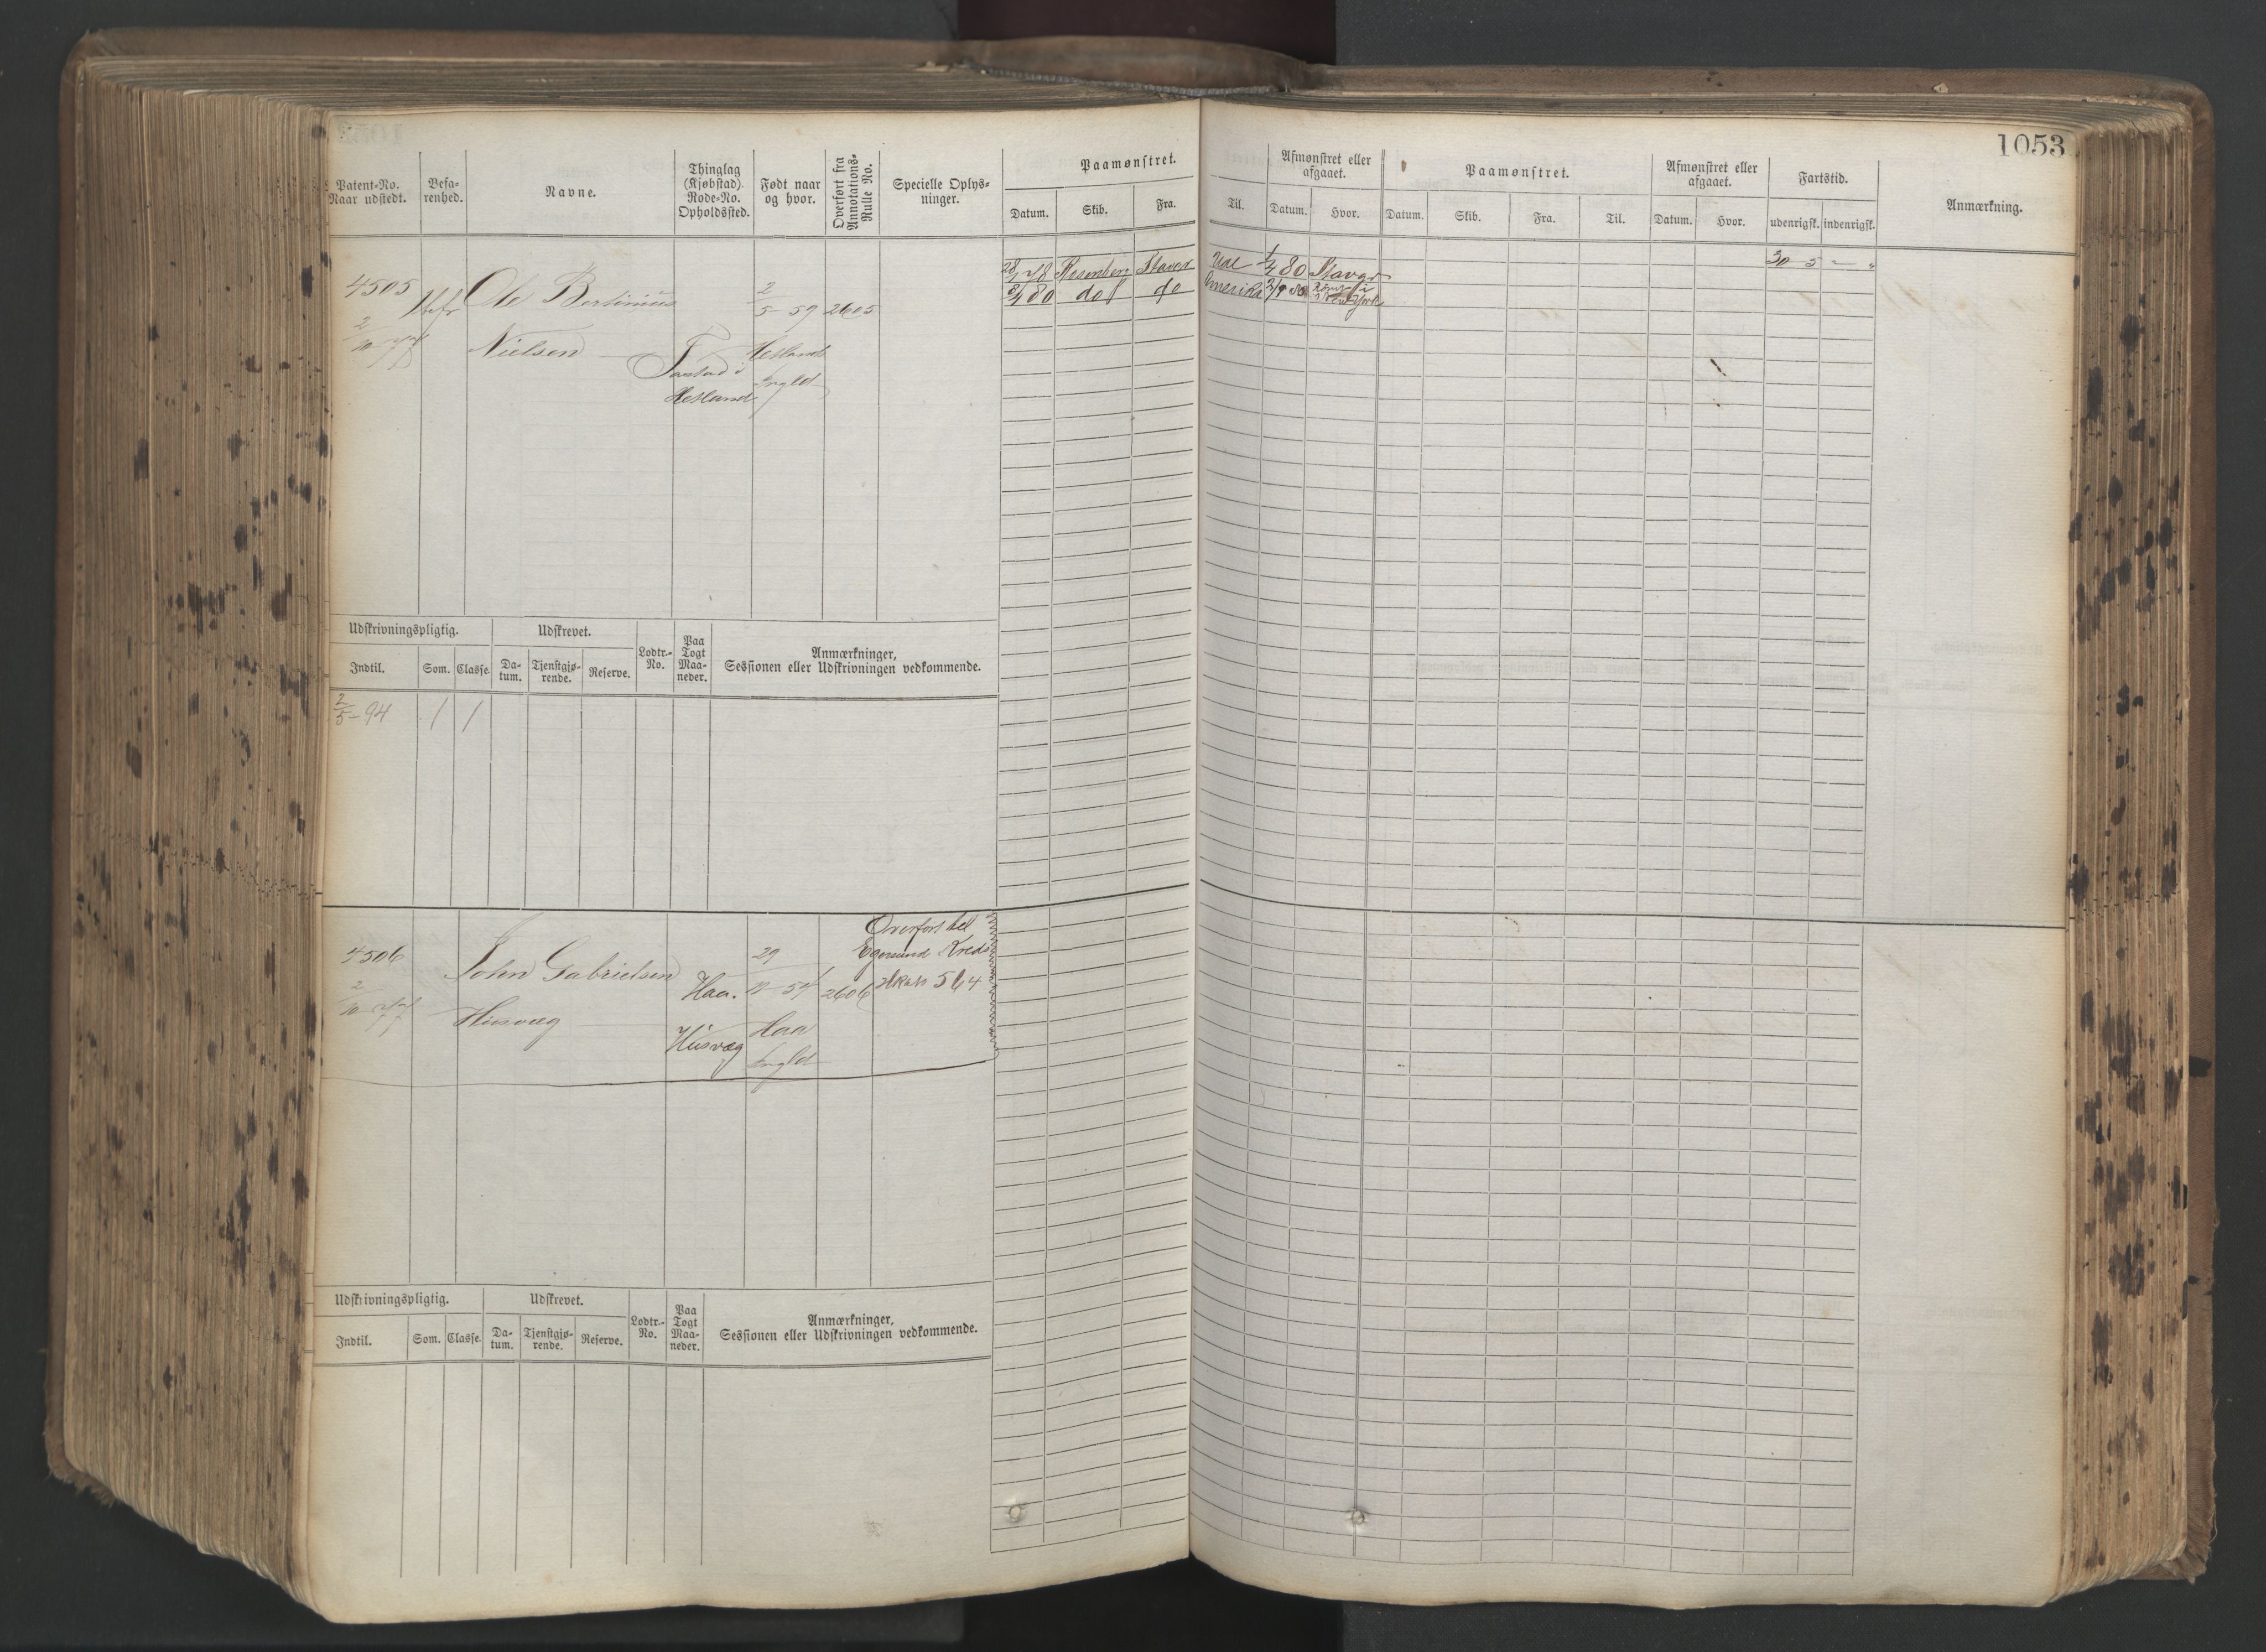 1053
Patent-No. Naar udstedt.
Befarenhed.
Navne.
Thinglag (Kjøbstad). Rode-No. Opholdssted.
Født naar og hvor.
Overført fra Annotations-Rulle No.
Specielle Oplysninger.
Paamønstret.
Datum. Skib. Fra. Til.
Afmønstret eller afgaaet.
Datum. Hvor.
Paamønstret.
Datum. Skib. Fra. Til.
Afmønstret eller afgaaet.
Datum. Hvor.
Fartstid.
udenrigsk. indenrigsk.
Anmærkning.
4505
2/10 77
Ole Bertinius
Nielsen
Tastad i
Hetland
2
5 - 59
Hetland
Ingld
2605
78 Rosenberg Stavgr Udl 1/4 80 Stavgr
80 do do Amerika 80 Rømt i New York
30 - 5 - "
Udskrivningspligtig. Udskrevet. Lodtr.-No. Paa Togt Maaneder. Anmærkninger, Sessionen eller Udskrivningen vedkommende.
Indtil. Som. Classe. Datum. Tjenstgjørende. Reserve.
2/5 - 94 1 1
4506
2/10 77
John Gabrielsen
Husvæg
Haa.
Husvæg
29
Haa
Ingld
2606
Overført til
Egersund Kreds
564
Udskrivningspligtig. Udskrevet. Lodtr.-No. Paa Togt Maaneder. Anmærkninger, Sessionen eller Udskrivningen vedkommende.
Indtil. Som. Classe. Datum. Tjenstgjørende. Reserve.